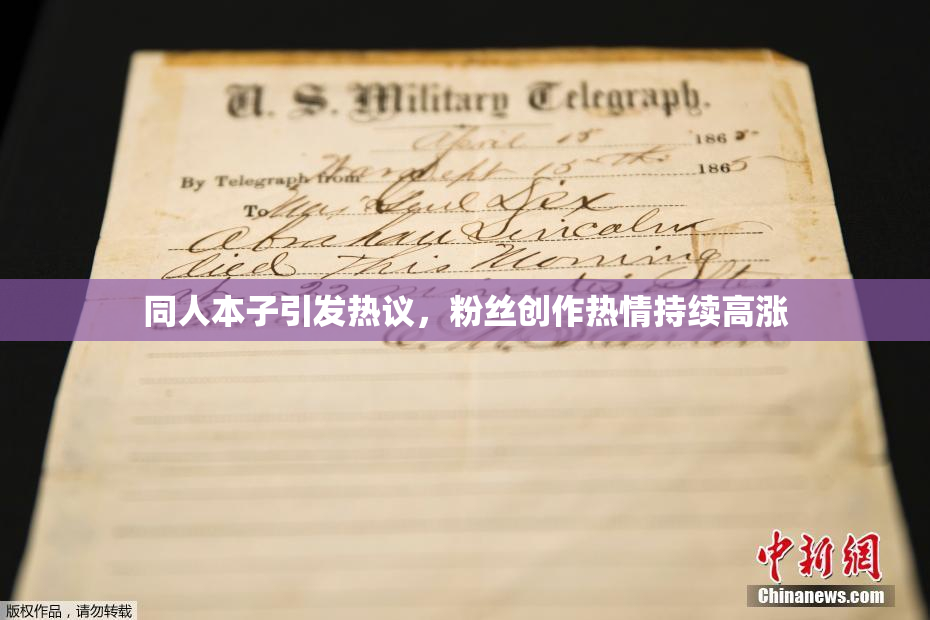 U. S. Military Telegraph.
April 15 1865
By Telegraph from War Dept 15th 1865
To Maj Genl Dix
Abraham Lincoln
died This Morning
22 minutes after
同人本子引发热议，粉丝创作热情持续高涨
E. M. Stanton
中新网
Chinanews.com
版权作品，请勿转载